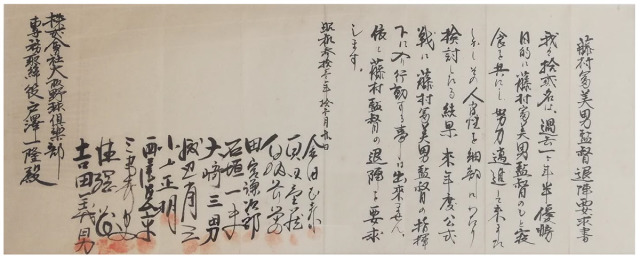 藤村富美男監督退陣要求書
我々拾弐名は、過去一ヶ年出優勝
目的に藤村富美男監督のもと寝
食を共にし努力邁進して来まし
たがその人間性を細部にわたり
検討したる結果来年度公式
戦に藤村富美男監督の指揮
下に入り行動する事は出来ません。
依て藤村監督の退陣を要求
します。
昭和参拾一年拾一月
今日
真田重蔵
白坂長栄
田宮謙次郎
石垣一夫
大崎三男
渡辺省三
小山正明
西尾
三宅秀史
吉田義男
株式会社大阪野球倶楽部
専務取締役戸澤一隆殿